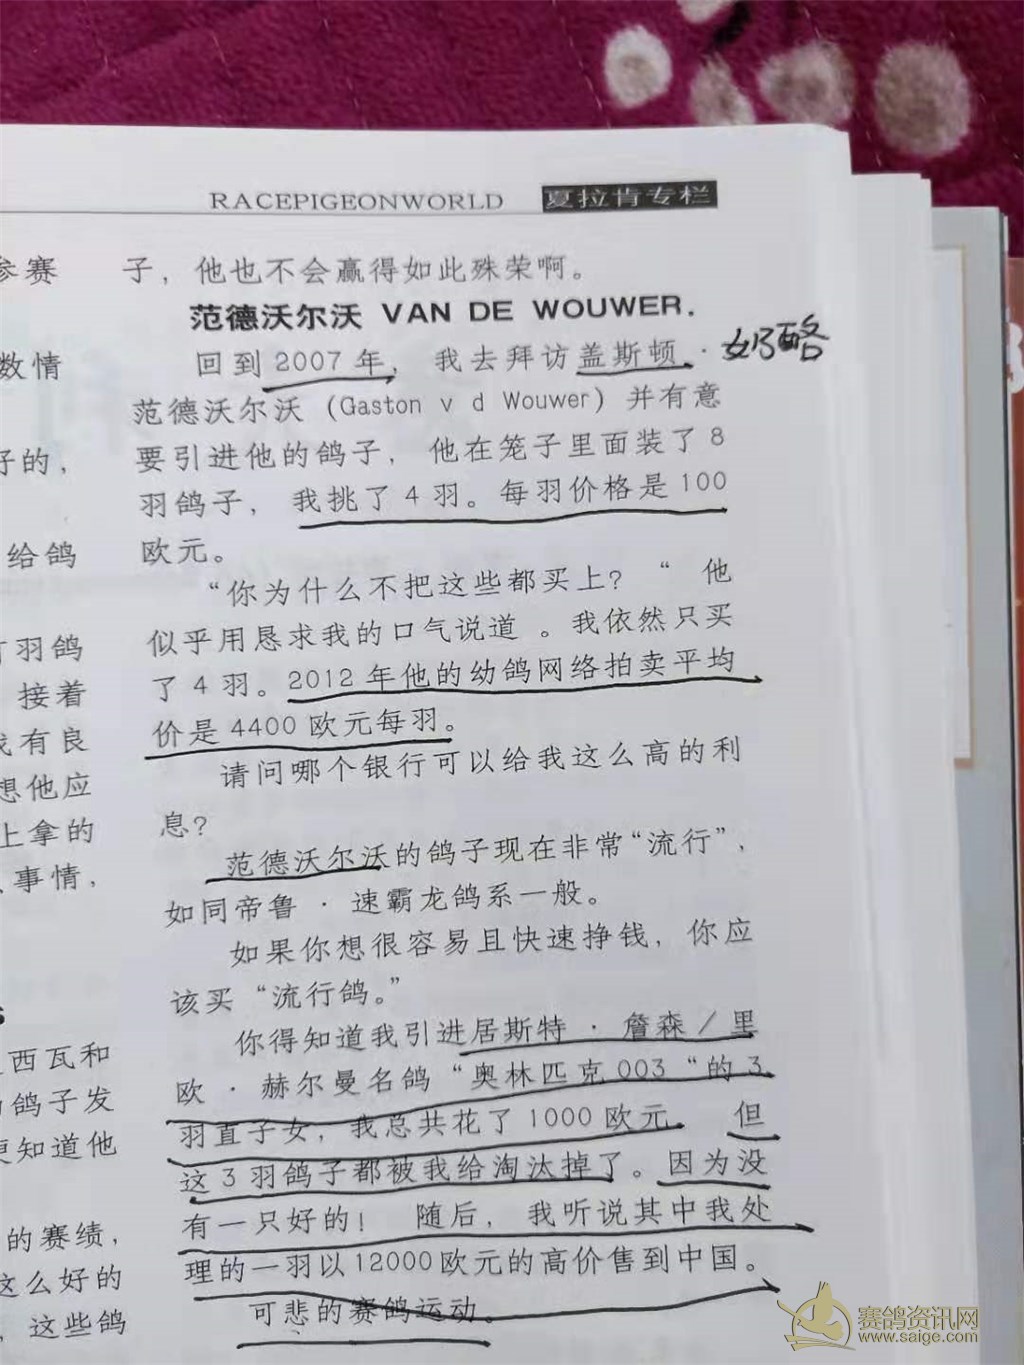 RACEPIGEONWORLD 夏拉肯专栏
参赛
数情
好的，
给鸽
羽鸽
接着
我有良
想他应
上拿的
事情，
西瓦和
鸽子发
更知道他
的赛绩，
这么好的
，这些鸽
子，他也不会赢得如此殊荣啊。
范德沃尔沃 VAN DE WOUWER.
回到2007年，我去拜访盖斯顿·
奶酪
范德沃尔沃（Gaston v d Wouwer）并有意
要引进他的鸽子，他在笼子里面装了8
羽鸽子，我挑了4羽。每羽价格是100
欧元。
“你为什么不把这些都买上？“ 他
似乎用恳求我的口气说道 。我依然只买
了4羽。2012年他的幼鸽网络拍卖平均
价是4400欧元每羽。
请问哪个银行可以给我这么高的利
息？
范德沃尔沃的鸽子现在非常“流行”，
如同帝鲁·速霸龙鸽系一般。
如果你想很容易且快速挣钱，你应
该买“流行鸽。”
你得知道我引进居斯特·詹森/里
欧·赫尔曼名鸽“奥林匹克003“的3
羽直子女，我总共花了1000欧元。 但
这3羽鸽子都被我给淘汰掉了。因为没
有一只好的！ 随后，我听说其中我处
理的一羽以12000欧元的高价售到中国。
可悲的赛鸽运动。
赛鸽资讯网
www.saige.com